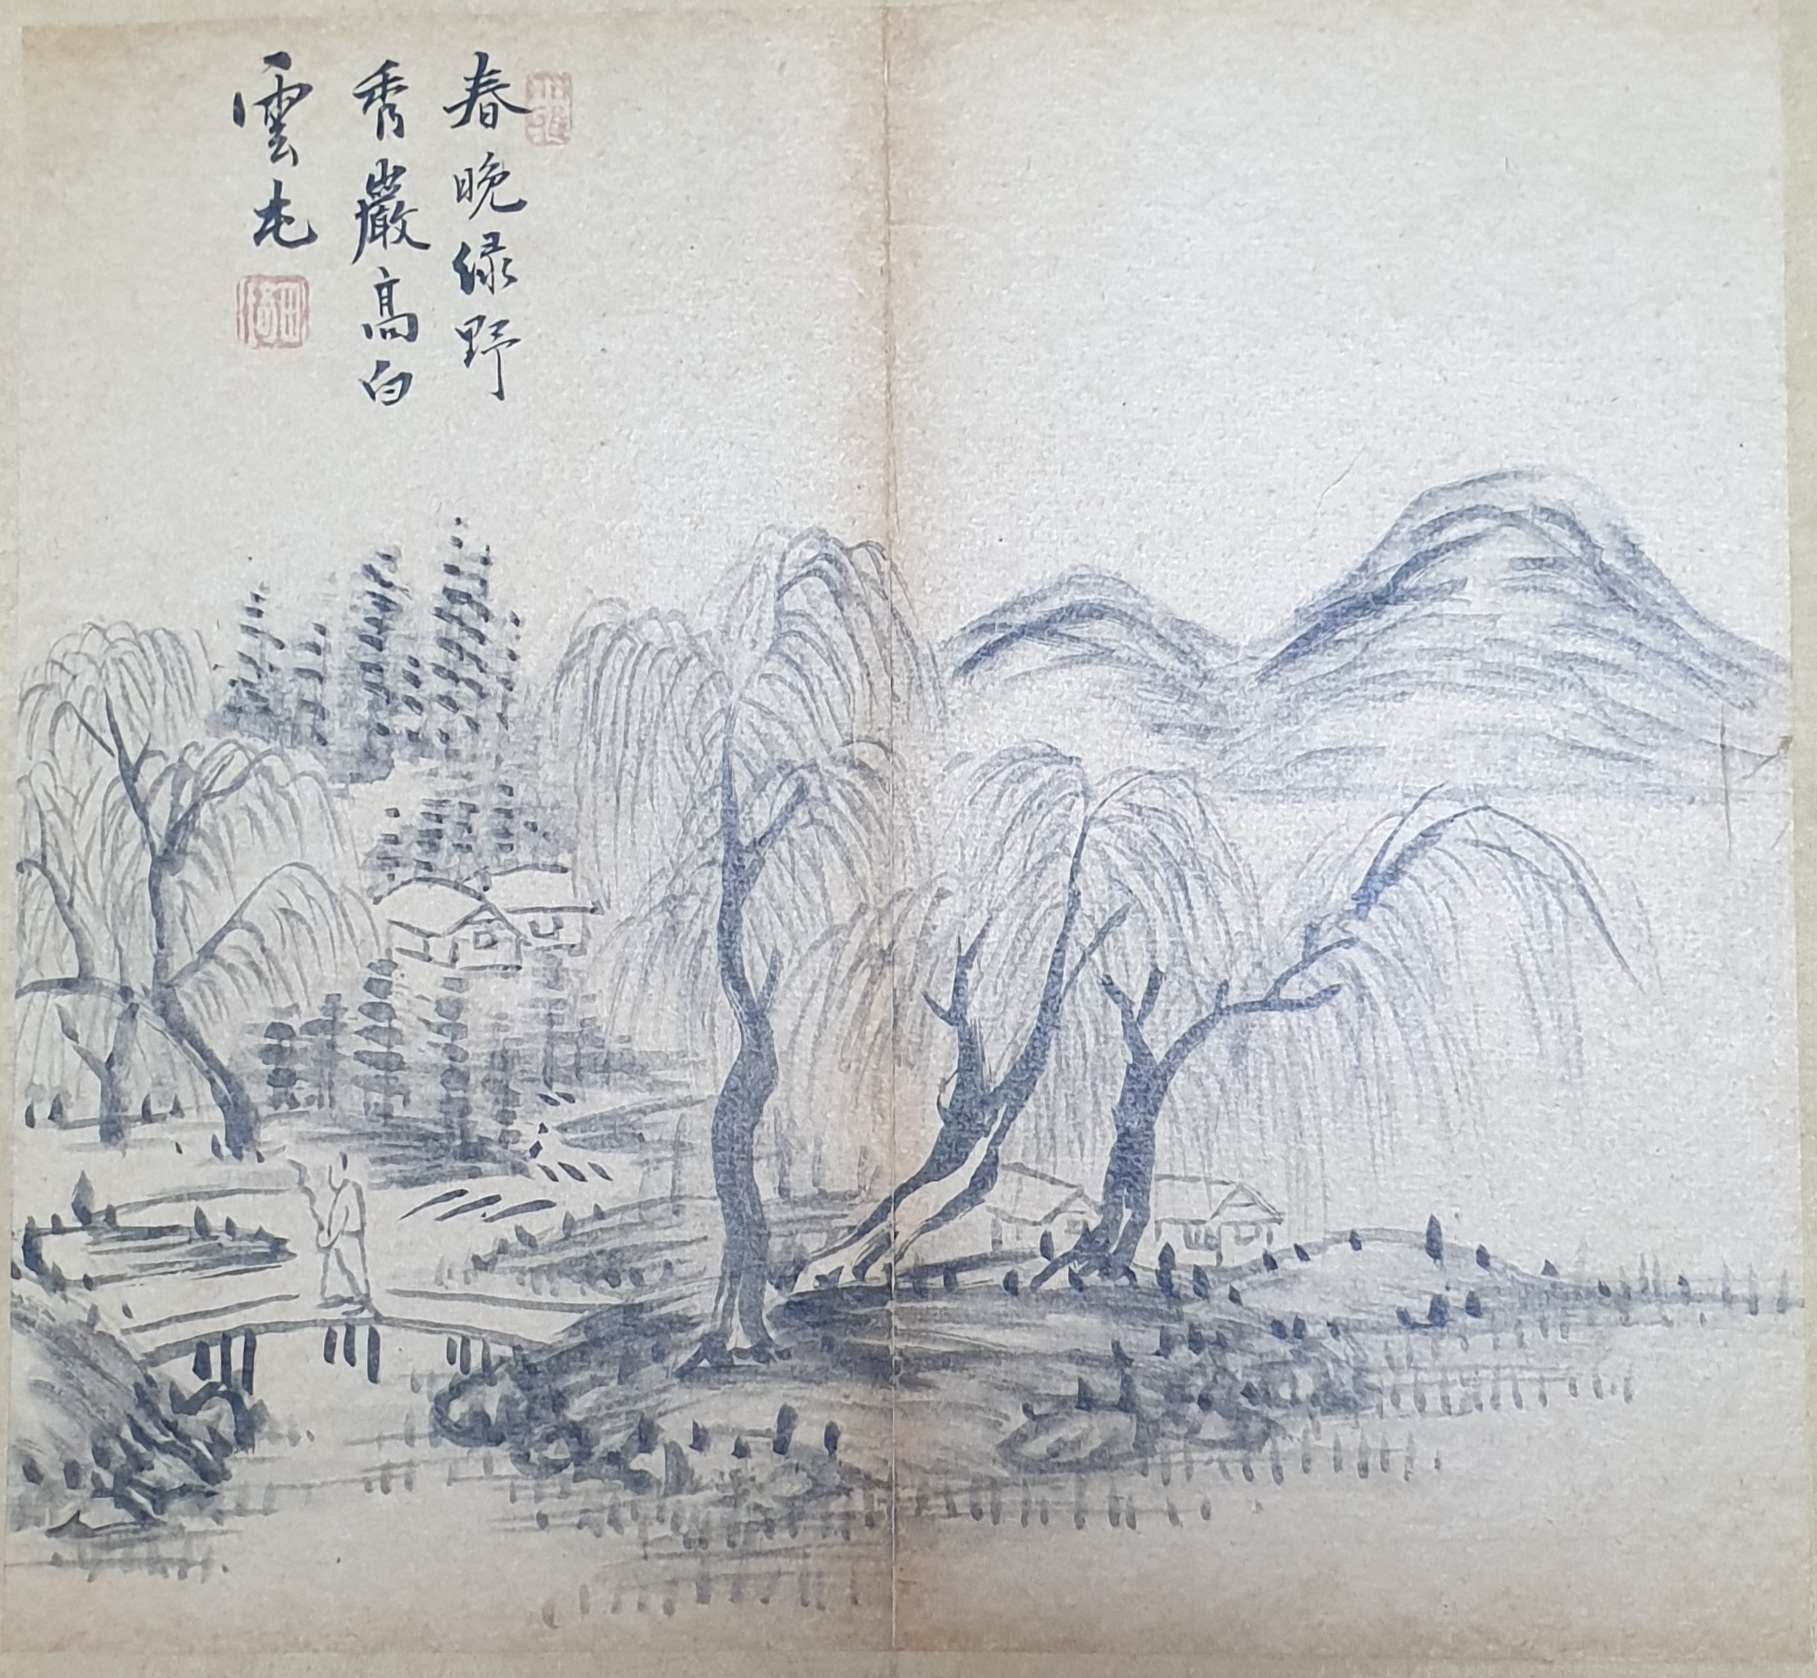 春晚緑野
秀巖高白
雲屯